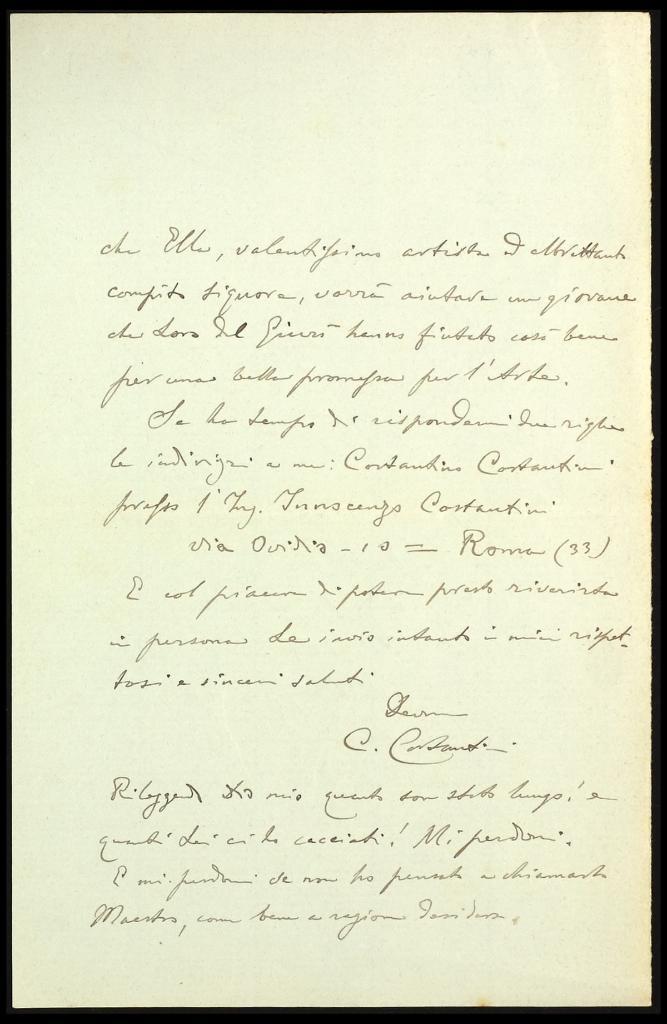 che Ella, valentissimo artista ed altrettanto
compito signore, vorrà aiutare un giovane
che Loro del Giurì hanno fiutato così bene
per una bella promessa per l'Arte.
Se ha tempo di rispondermi due righe
le indirizzi a me: Costantino Costantini
presso l'Ing. Innocenzo Costantini
via Ovidio - 10 = Roma (33)
E col piacere di poterla presto riverirla
in persona Le invio intanto i miei rispet-
tosi e sinceri saluti
Devmo
C. Costantini
Rileggendo Dio mio quanto son stato lungo! e
quanti Lei ci ho cacciati! Mi perdoni.
E mi perdoni se non ho pensato a chiamarlo
Maestro, come bene a ragione desidera.